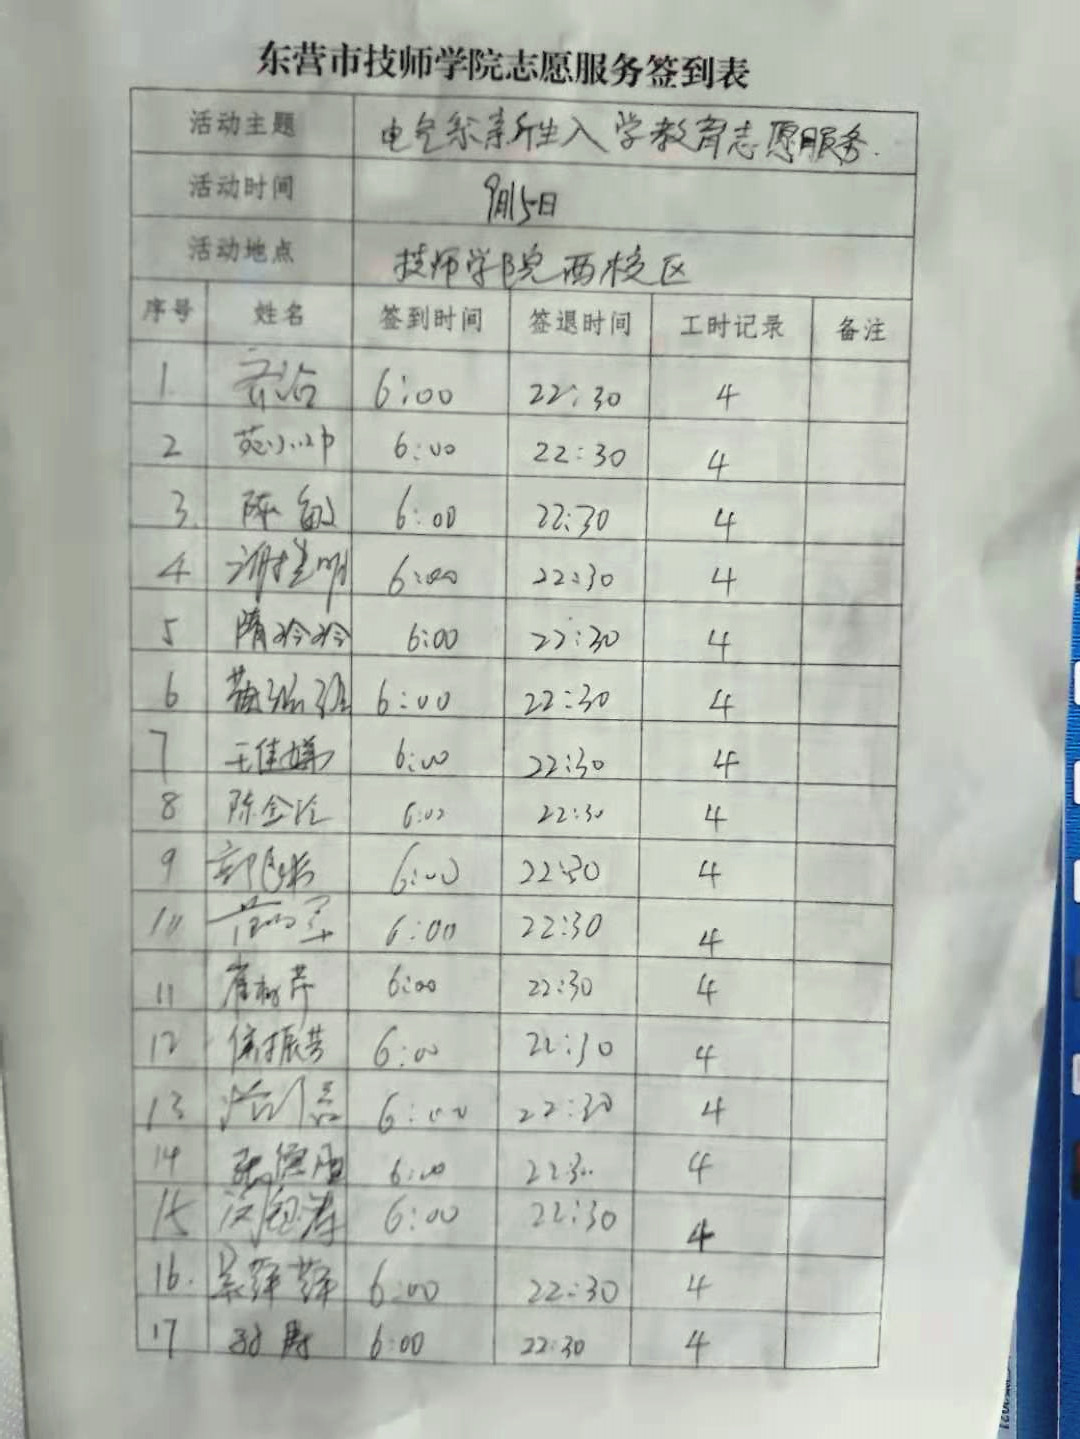 东营市技师学院志愿服务签到表
活动主题 电气系新生入学教育志愿服务.
活动时间 9月15日
活动地点 技师学院西校区
序号 姓名 签到时间 签退时间 工时记录 备注
1. 6:00 22:30 4
2 苑小冲 6:00 22:30 4
3. 陈敏 6:00 22:30 4
4 6:00 22:30 4
5 隋玲玲 6:00 22:30 4
6 6:00 22:30 4
7 王佳 6:00 22:30 4
8 陈金 6:00 22:30 4
9 6:00 22:30 4
10 6:00 22:30 4
11 崔树芹 6:00 22:30 4
12 振芳 6:00 22:30 4
13 6:00 22:30 4
14 张德 6:00 22:30 4
15 6:00 22:30 4
16. 6:00 22:30 4
17 6:00 22:30 4